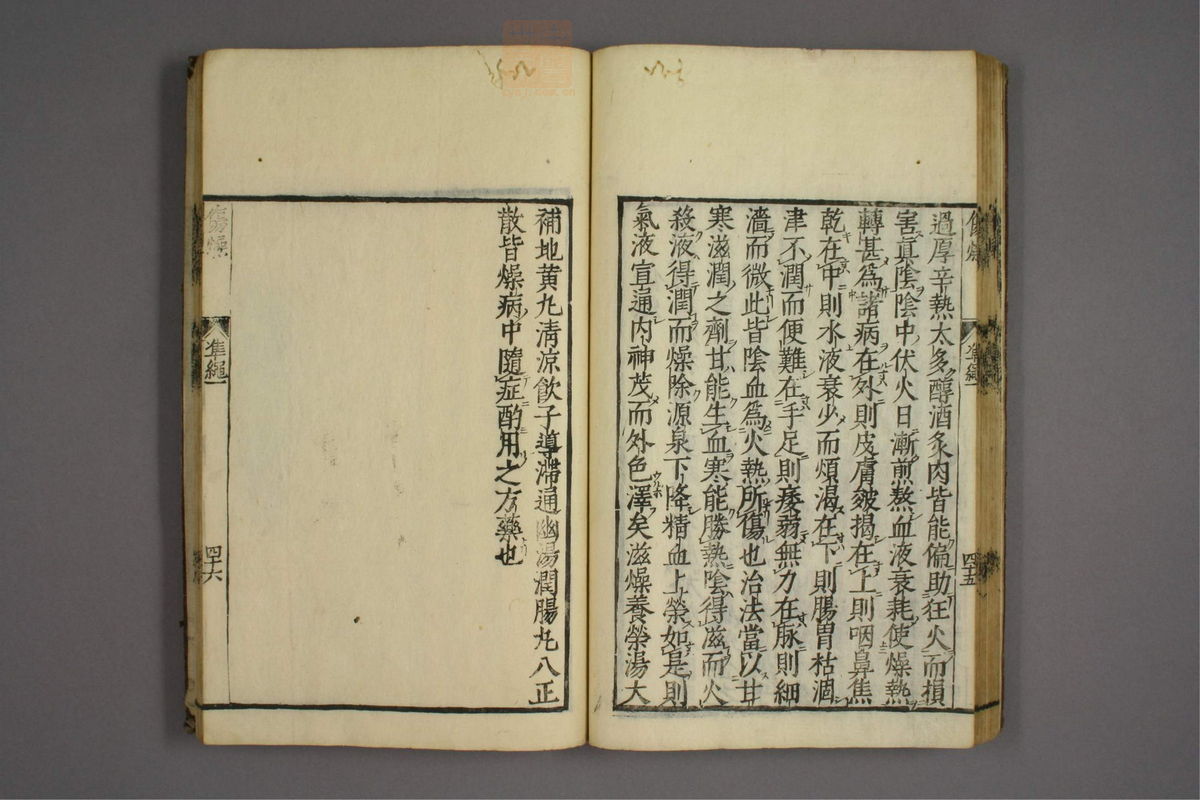 傷燥
準繩
四十五
過厚辛熱太多醇酒炙肉皆能偏助狂火而損
害眞陰陰中伏火日漸煎熬血液衰耗使燥熱
轉甚爲諸病在外則皮膚皴揭在上則咽鼻焦
乾在中則水液衰少而煩渴在下則腸胃枯涸
津不潤而便難在手足則痿弱無力在脉則細
濇而微此皆陰血爲火熱所傷也治法當以甘
寒滋潤之劑甘能生血寒能勝熱陰得滋而火
殺液得潤而燥除源泉下降精血上榮如是則
氣液宣通内神茂而外色澤矣滋燥養榮湯大
補地黄丸清涼飲子導滞通幽湯潤腸丸八正
散皆燥病中隨症酌用之方藥也
傷燥
準繩
四十六